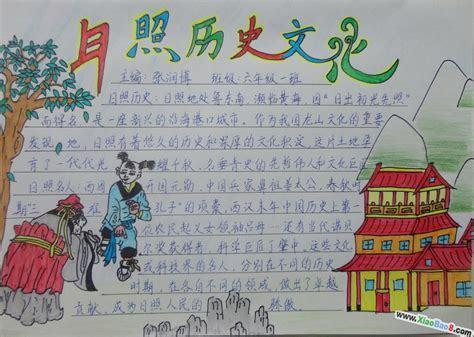 日照历史文化
主编:张润博 班级:六年级一班
日照历史:日照地处鲁东南,濒临黄海,因“日出初光先照”
而得名,是一座新兴的沿海港口城市。作为我国龙山文化的重要
发现地,日照有着悠久的历史和累厚的文化积淀,这片土地孕
育了一代代光耀千秋,名垂青史的先哲伟人和文化巨
日照名人:西周开国元勋,中国兵家鼻祖姜太公,春秋时
期“三难孔子”的项橐,西汉末年中国历史上第一
位农民起义女领袖吕母……还有当代诺贝
尔奖获得者,科学巨匠丁肇中,这些文化
或科技界的名人,分别在不同的历史
时期,在各自不同的领域,做出了卓越
贡献,成为日照人民的骄傲。
www.XiaoBao8.com